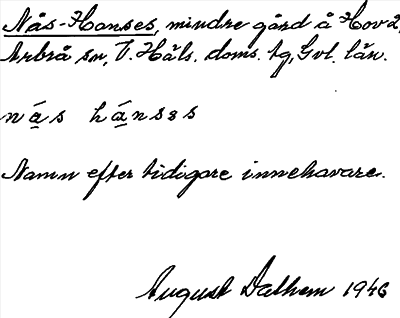 Nås-Hanses, mindre gård å Hov 2,
Arbrå sn, V. Häls. doms. tg, Gvl. län.
nás hánses
Namn efter tidigare innehavare.
August Dalhem 1946